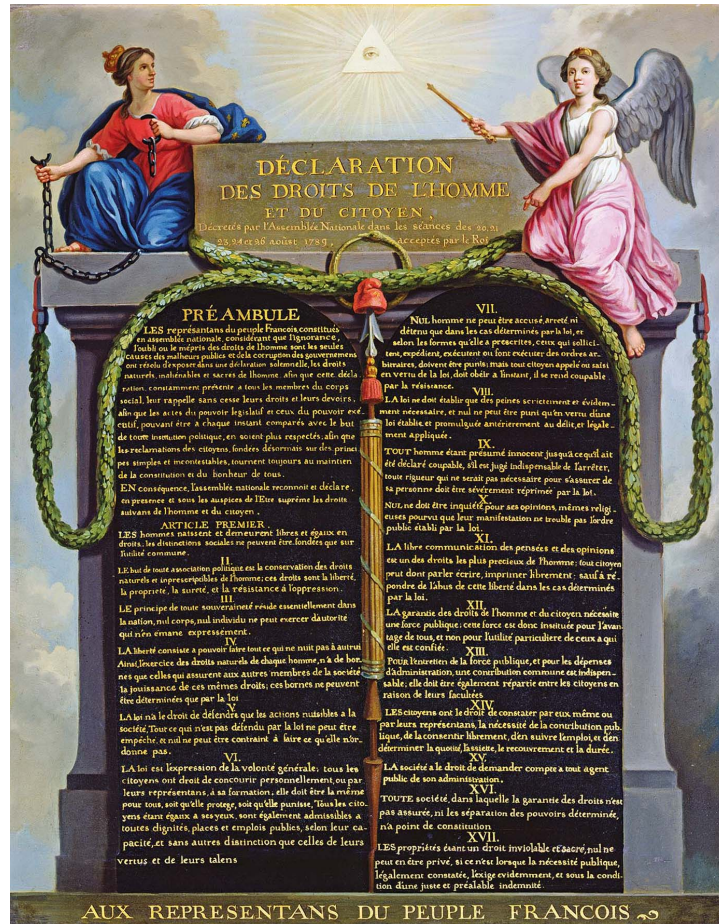 DÉCLARATION
DES DROITS DE L'HOMME
ET DU CITOYEN,
Décretés par l'Assemblée Nationale dans les séances des 20, 21
23, 24 et 26 aoûst 1789, acceptés par le Roi
PRÉAMBULE
LES représantans du peuple Francois, constitués
en assemblée nationale, considérant que l'ignorance,
l'oubli ou le mépris des droits de l'homme sont les seules
causes des malheurs publics et de la corruption des gouvernemens
ont résolu d'exposer dans une déclaration solemnelle, les droits
naturels, inaliénables et sacrés de l'homme, afin que cette décla
ration, constamment présente a tous les membres du corps
social, leur rappelle sans cesse leurs droits et leurs devoirs,
afin que les actes du pouvoir legislatif et ceux du pouvoir exé-
cutif, pouvant être a chaque instant comparés avec le but
de toute institution politique, en soient plus respectés; afin que
les reclamations des citoyens, fondées désormais sur des princi
pes simples et incontestables, tournent toujours au maintien
de la constitution et du bonheur de tous.
EN conséquence, l'assemblée nationale reconnoît et déclare,
en presence et sous les auspices de l'Etre suprême les droits
suivans de l'homme et du citoyen.
ARTICLE PREMIER.
LES hommes naissent et demeurent libres et égaux en
droits, les distinctions sociales ne peuvent être fondées que sur
l'utilité commune.
II.
LE but de toute association politique est la conservation des droits
naturels et inprescriptibles de l'homme; ces droits sont la liberté,
la proprieté, la sureté, et la résistance à l'oppression.
III.
LE principe de toute souveraineté réside essentiellement dans
la nation, nul corps, nul individu ne peut exercer d'autorité
qui n'en émane expressement.
IV.
LA liberté consiste a pouvoir faire tout ce qui ne nuit pas à autrui
Ainsi, l'exercice des droits naturels de chaque homme, n'a de bor-
nes que celles qui assurent aux autres membres de la société
la jouissance de ces mêmes droits; ces bornes ne peuvent
être déterminées que par la loi
V.
LA loi n'a le droit de défendre que les actions nuisibles a la
société. Tout ce qui n'est pas défendu par la loi ne peut être
empêché, et nul ne peut être contraint à faire ce qu'elle n'or-
donne pas.
VI.
LA loi est l'expression de la volonté générale; tous les
citoyens ont droit de concourir personnellement, ou par
leurs représentans, à sa formation; elle doit être la même
pour tous, soit qu'elle protege, soit qu'elle punisse, Tous les cito-
yens étant égaux à ses yeux, sont également admissibles a
toutes dignités, places et emplois publics, selon leur ca-
pacité, et sans autres distinction que celles de leurs
vertus et de leurs talens
VII.
NUL homme ne peut être accusé, arreté ni
détenu que dans les cas déterminés par la loi, et
selon les formes qu'elle a prescrites, ceux qui sollici-
tent, expédient, exécutent ou font exécuter des ordres ar-
bitraires, doivent être punis; mais tout citoyen appelé ou saisi
en vertu de la loi, doit obéir a l'instant, il se rend coupable
par la résistance.
VIII.
LA loi ne doit établir que des peines strictement et évidem-
ment nécessaire, et nul ne peut être puni qu'en vertu d'une
loi établie et promulguée antérierement au délit, et légale-
ment appliquée.
IX.
TOUT homme étant présumé innocent jusqu'a ce qu'il ait
été déclaré coupable, s'il est jugé indispensable de l'arrêter,
toute rigueur qui ne serait pas nécessaire pour s'assurer de
sa personne doit être sévèrement réprimée par la loi.
X.
NUL ne doit être inquiété pour ses opinions, mêmes religi-
euses pourvu que leur manifestation ne trouble pas l'ordre
public établi par la loi.
XI.
LA libre communication des pensées et des opinions
est un des droits les plus precieux de l'homme; tout citoyen
peut dont parler écrire, imprimer librement; sauf à ré-
pondre de l'abus de cette liberté dans les cas déterminés
par la loi.
XII.
LA garantie des droits de l'homme et du citoyen nécessite
une force publique; cette force est donc instituée pour l'avan-
tage de tous, et non pour l'utilité particuliere de ceux a qui
elle est confiée.
XIII.
POUR l'entretien de la force publique, et pour les dépenses
d'administration, une contribution commune est indispen-
sable; elle doit être également répartie entre les citoyens en
raison de leurs facultées
XIV.
LES citoyens ont le droit de constater par eux même ou
par leurs représentans, la nécessité de la contribution pub-
lique, de la consentir librement, d'en suivre l'emploi, et d'en
déterminer la quotité, l'assiette, le recouvrement et la durée.
XV.
LA société a le droit de demander compte a tout agent
public de son administration.
XVI.
TOUTE société, dans laquelle la garantie des droits n'est
pas assurée, ni les séparation des pouvoirs déterminée,
n'a point de constitution
XVII.
LES propriétés étant un droit inviolable et sacré, nul ne
peut en être privé, si ce n'est lorsque la nécessité publique,
légalement constatée, l'exige evidemment, et sous la condi-
tion d'une juste et préalable indemnité.
AUX REPRESENTANS DU PEUPLE FRANCOIS